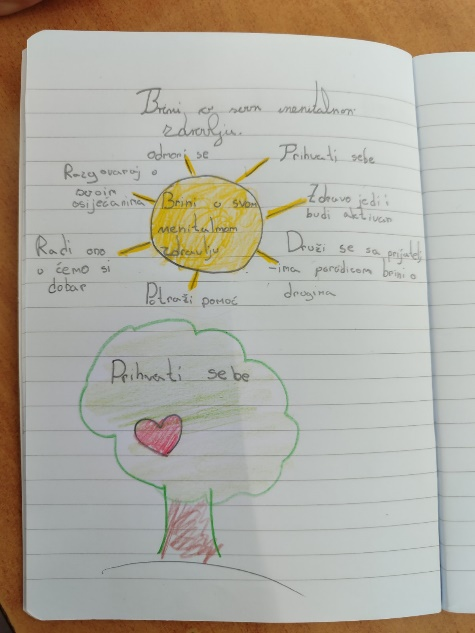 Brini o svom menitalnom
zdravlju.
odmori se
Prihvati sebe
Razgovaraj o
svojim
osijećanima
Brini o svom
menitalnom
zdravlju
Zdravo jedi i
budi aktivan
Radi ono
u čemo si
dobar
Druži se sa prijatelj
-ima porodicom brini o
drugima
Potraži pomoć
Prihvati sebe